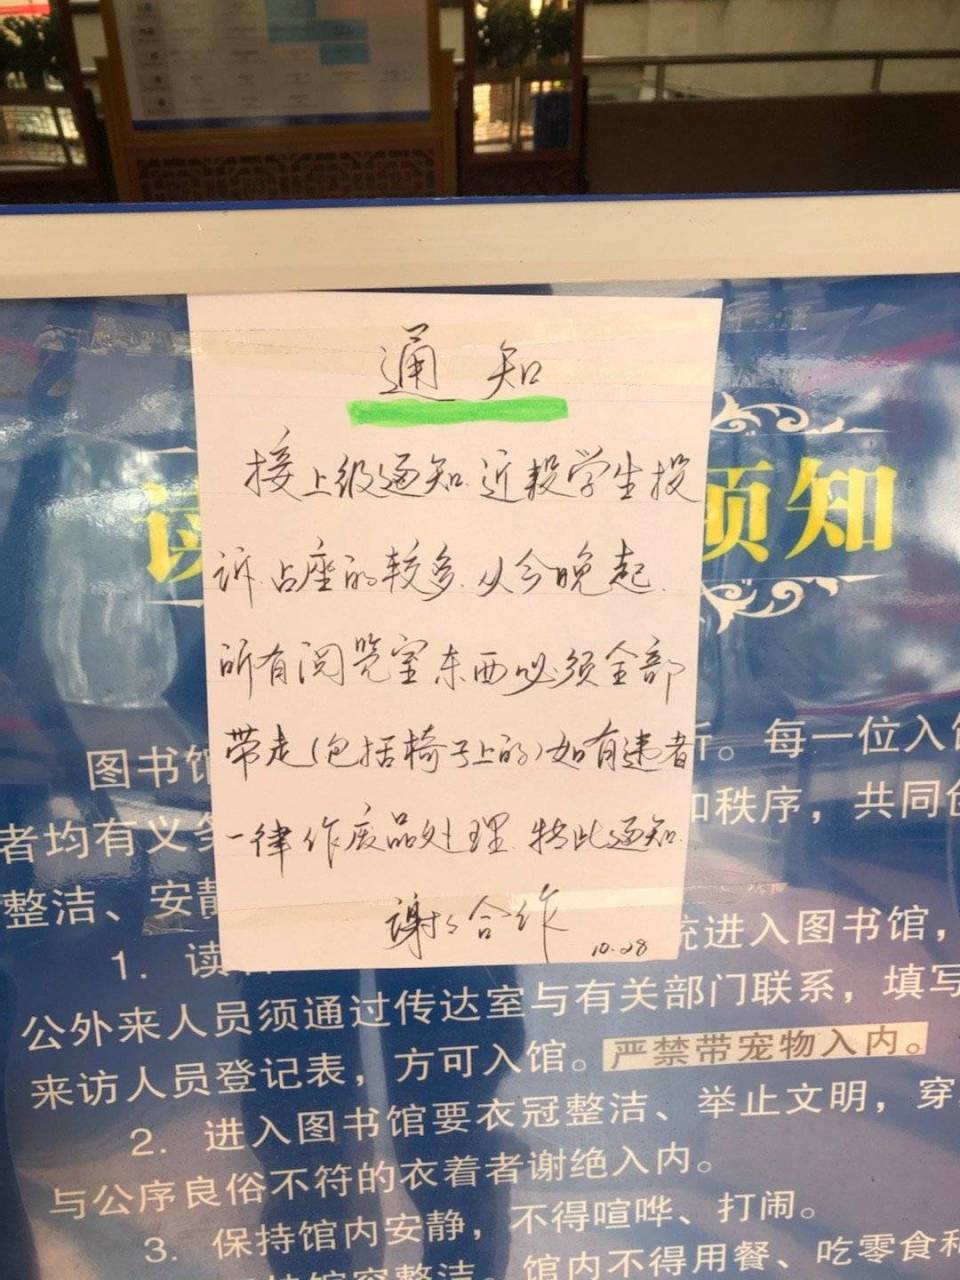 通知
接上级通知.近段学生投
诉.占座的较多.从今晚起.
所有阅览室东西必须全部
带走(包括椅子上的)如有违者
一律作废品处理.特此通知.
谢谢合作
10.28
读 须知
图书馆 。每一位入馆
者均有义务 和秩序，共同创
整洁、安静
1. 读 统进入图书馆，
公外来人员须通过传达室与有关部门联系，填写
来访人员登记表，方可入馆。严禁带宠物入内。
2. 进入图书馆要衣冠整洁、举止文明，穿
与公序良俗不符的衣着者谢绝入内。
3. 保持馆内安静，不得喧哗、打闹。
持馆容整洁。馆内不得用餐、吃零食和